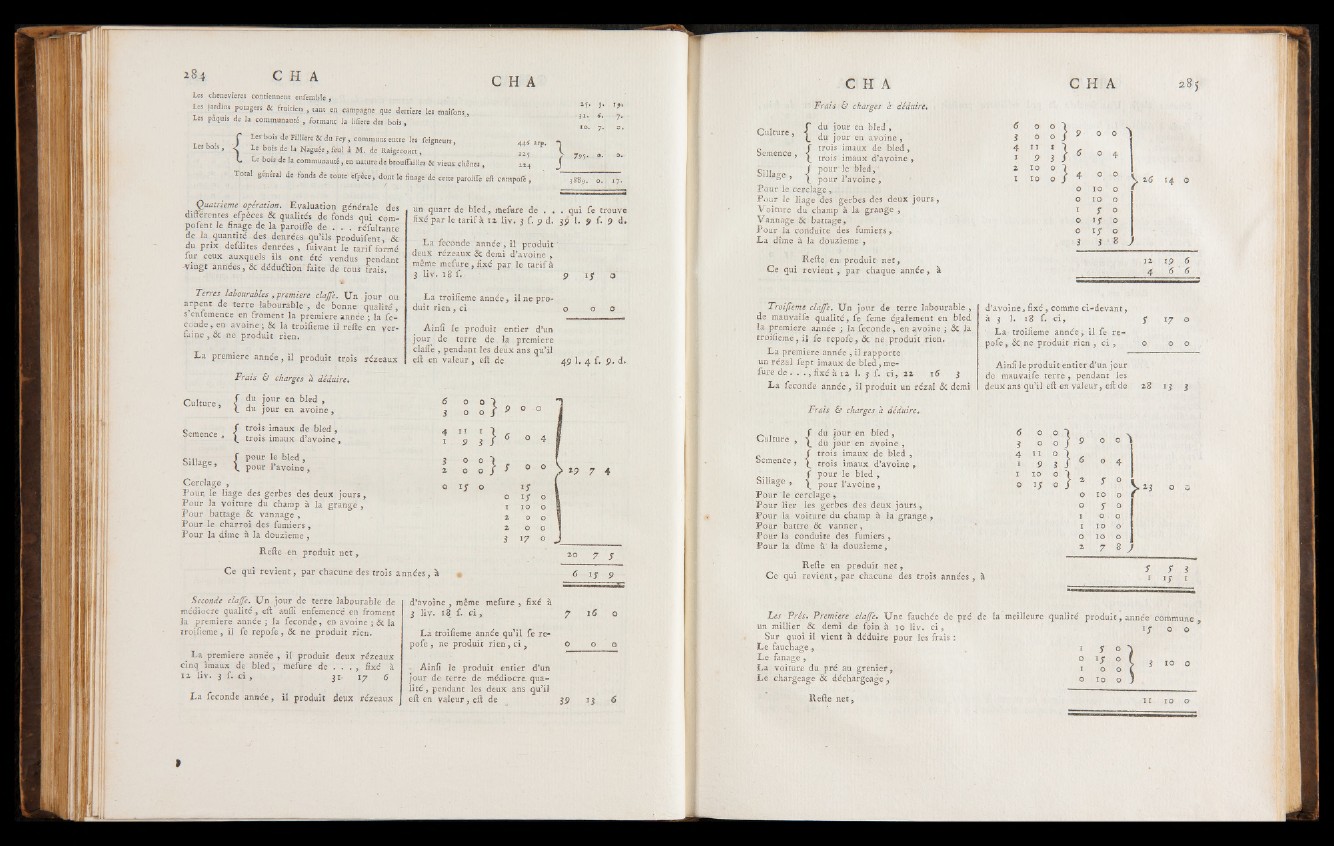 284 C H A C H A
Les chenevieres contiennent enſemble, 25. 3. 19.
Les jardins potagers & fruitiers, tant en campagne que derriere les maiſons, 31. 6. 7.
Les pâquis de la communauté, formant la liſiere des bois, 10. 7. 0.
Les bois, { Les bois de Filliere & du Fey, communs entre les ſeigneurs, 446 arp.
Le bois de la Naguée, ſeul à M. de Raigecourt, 225 } 795. 0. 0.
Le bois de la communauté, en nature de brouſſailles & vieux chênes, 124
Total général de fonds de toute eſpéce, dont le finage de cette paroiſſe eſt compoſé, 3889. 0. 17.
Quatrieme opération. Evaluation générale des
différentes eſpéces & qualités de fonds qui com-
poſent le finage de la paroiſſe de . . . réſultante
de la quantité des denrées qu'ils produiſent, &
du prix deſdites denrées, ſuivant le tarif formé
ſur ceux auxquels ils ont été vendus pendant
vingt années, & déduction faite de tous frais.
Terres labourables, premiere claſſe. Un jour ou
arpent de terre labourable, de bonne qualité,
s'enſemence en froment la premiere année; la ſe-
conde, en avoine; & la troiſieme il reſte en ver-
ſaine, & ne produit rien.
La premiere année, il produit trois rézeaux
un quart de bled, meſure de . . . qui ſe trouve
fixé par le tarif à 12 liv. 3 ſ. 9 d. 39 l. 9 ſ. 9 d.
La ſeconde année, il produit
deux rézeaux & demi d'avoine,
même meſure, fixé par le tarif à
3 liv. 18 ſ. 9 15 0
La troiſieme année, il ne pro-
duit rien, ci 0 0 0
Ainſi le produit entier d'un
jour de terre de la premiere
claſſe, pendant les deux ans qu'il
eſt en valeur, eſt de 49 l. 4 ſ. 9. d.
Frais & charges à déduire.
Culture, { du jour en bled, 6 0 0
du jour en avoine, 3 0 0 } 9 0 0
Semence, { trois imaux de bled, 4 11 1
trois imaux d'avoine, 1 9 3 } 6 0 4
Sillage, { pour le bled, 3 0 0
pour l'avoine, 2 0 0 } 5 0 0 } 29 7 4
Cerclage, 0 15 0 15
Pour le liage des gerbes des deux jours, 0 15 0
Pour la voiture du champ à la grange, 1 10 0
Pour battage & vannage, 2 0 0
Pour le charroi des fumiers, 2 0 0
Pour la dîme à la douzieme, 3 17 0
Reſte en produit net, 20 7 5
Ce qui revient, par chacune des trois années, à 6 15 9
Seconde claſſe. Un jour de terre labourable de
médiocre qualité, eſt auſſi enſemencé en froment
la premiere année; la ſeconde, en avoine; & la
troiſieme, il ſe repoſe, & ne produit rien.
La premiere année, il produit deux rézeaux
cinq imaux de bled, meſure de . . . , fixé à
12 liv. 3 ſ. ci, 31 17 6
La ſeconde année, il produit deux rézeaux
d'avoine, même meſure, fixé à
3 liv. 18 ſ. ci, 7 16 0
La troiſieme année qu'il ſe re-
poſe, ne produit rien, ci, 0 0 0
Ainſi le produit entier d'un
jour de terre de médiocre qua-
lité, pendant les deux ans qu'il
eſt en valeur, eſt de 39 13 6
C H A C H A 285
Frais & charges à déduire.
Culture, { du jour en bled, 6 0 0
du jour en avoine, 3 0 0 } 9 0 0
Semence, { trois imaux de bled, 4 11 1
trois imaux d'avoine, 1 9 3 } 6 0 4
Sillage, { pour le bled, 2 10 0
pour l'avoine, 1 10 0 } 4 0 0 } 26 14 0
Pour le cerclage, 0 10 0
Pour le liage des gerbes des deux jours, 0 10 0
Voiture du champ à la grange, 1 5 0
Vannage & battage, 0 15 0
Pour la conduite des fumiers, 0 15 0
La dîme à la douzieme, 3 3 8
Reſte en produit net, 12 19 6
Ce qui revient, par chaque année, à 4 6 6
Troiſieme claſſe. Un jour de terre labourable,
de mauvaiſe qualité, ſe ſeme également en bled
la premiere année; la ſeconde, en avoine; & la
troiſieme, il ſe repoſe, & ne produit rien.
La premiere année, il rapporte
un rézal ſept imaux de bled, me-
ſure de . . . , fixé à 12 l. 3 ſ. ci, 22 16 3
La ſeconde année, il produit un rézal & demi
d'avoine, fixé, comme ci-devant,
à 3 l. 18 ſ. ci, 5 17 0
La troiſieme année, il ſe re-
poſe, & ne produit rien, ci, 0 0 0
Ainſi le produit entier d'un jour
de mauvaiſe terre, pendant les
deux ans qu'il eſt en valeur, eſt de 28 13 3
Frais & charges à déduire.
Culture, { du jour en bled, 6 0 0
du jour en avoine, 3 0 0 } 9 0 0
Semence, { trois imaux de bled, 4 11 0
trois imaux d'avoine, 1 9 3 } 6 0 4
Sillage, { pour le bled, 1 10 0
pour l'avoine, 0 15 0 } 2 5 0 } 23 0 0
Pour le cerclage, 0 10 0
Pour lier les gerbes des deux jours, 0 5 0
Pour la voiture du champ à la grange, 1 0 0
Pour battre & vanner, 1 10 0
Pour la conduite des fumiers, 0 10 0
Pour la dîme à la douzieme, 2 7 8
Reſte en produit net, 5 5 3
Ce qui revient, par chacune des trois années, à 1 15 1
Les Prés. Premiere claſſe. Une fauchée de pré de la meilleure qualité produit, année commune,
un millier & demi de foin à 10 liv. ci, 15 0 0
Sur quoi il vient à déduire pour les frais:
Le fauchage, 1 5 0
Le fanage, 0 15 0 } 3 10 0
La voiture du pré au grenier, 1 0 0
Le chargeage & déchargeage, 0 10 0
Reſte net, 11 10 0